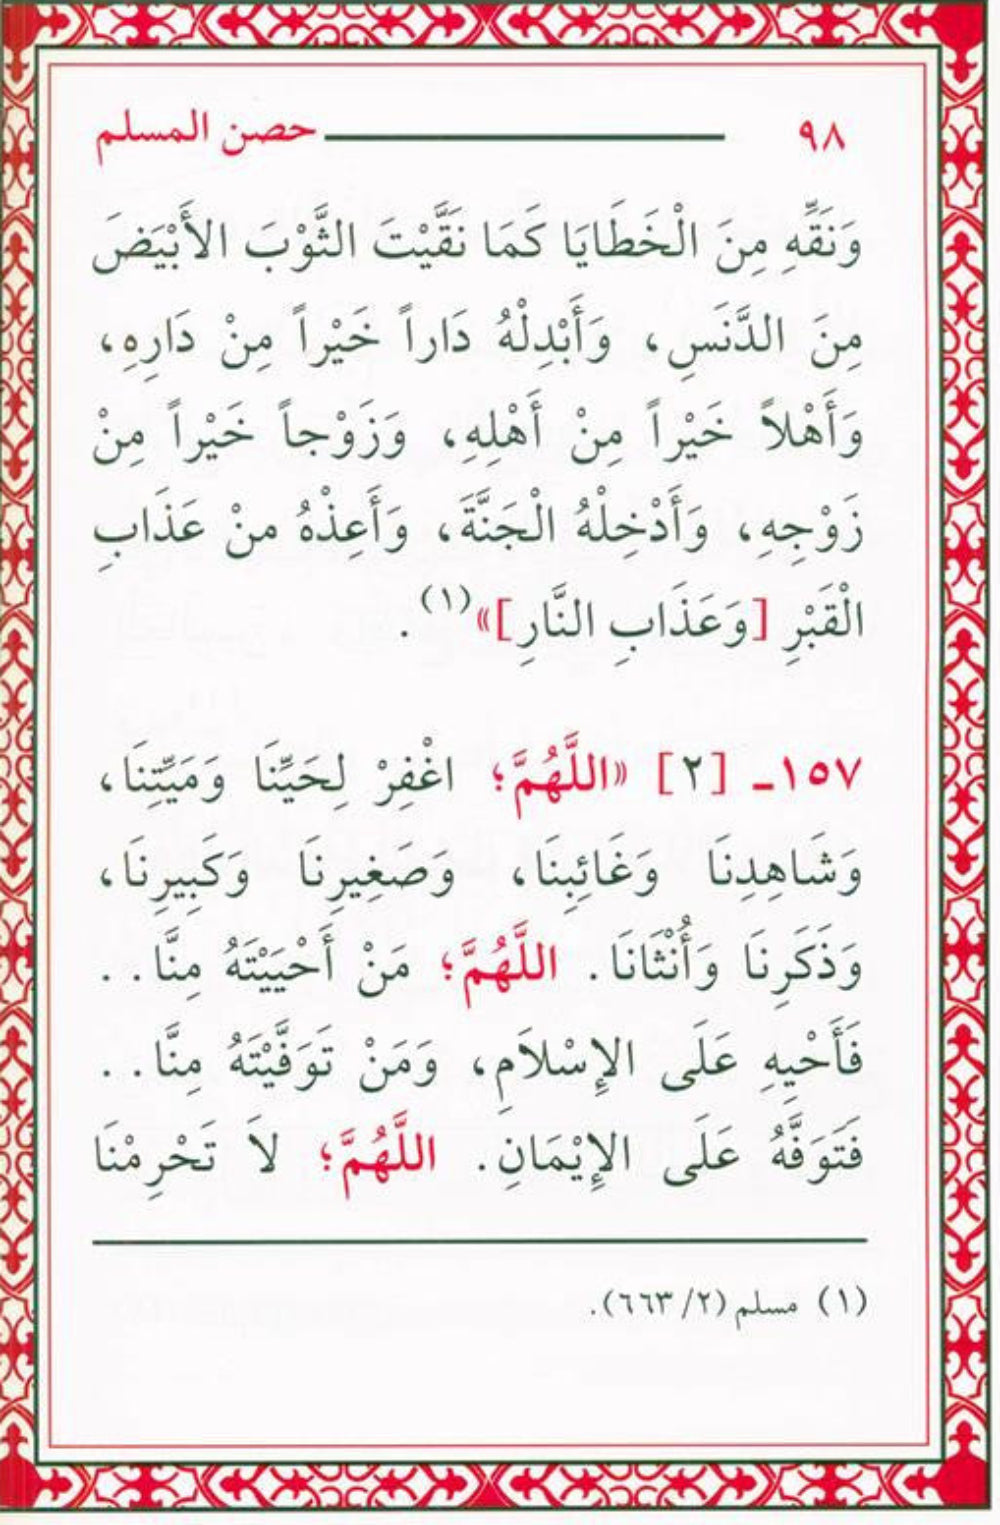 ٩٨ حصن المسلم
وَنَقِّهِ مِنَ الْخَطَايَا كَمَا نَقَّيْتَ الثَّوْبَ الأَبْيَضَ
مِنَ الدَّنَسِ، وَأَبْدِلْهُ دَاراً خَيْراً مِنْ دَارِهِ،
وَأَهْلاً خَيْراً مِنْ أَهْلِهِ، وَزَوْجاً خَيْراً مِنْ
زَوْجِهِ، وَأَدْخِلْهُ الْجَنَّةَ، وَأَعِذْهُ منْ عَذَابِ
الْقَبْرِ [وَعَذَابِ النَّارِ]»(١).
١٥٧ـ [٢] «اللَّهُمَّ؛ اغْفِرْ لِحَيِّنَا وَمَيِّتِنَا،
وَشَاهِدِنَا وَغَائِبِنَا، وَصَغِيرِنَا وَكَبِيرِنَا،
وَذَكَرِنَا وَأُنْثَانَا. اللَّهُمَّ؛ مَنْ أَحْيَيْتَهُ مِنَّا..
فَأَحْيِهِ عَلَى الإِسْلاَمِ، وَمَنْ تَوَفَّيْتَهُ مِنَّا..
فَتَوَفَّهُ عَلَى الإِيْمَانِ. اللَّهُمَّ؛ لاَ تَحْرِمْنَا
(١) مسلم (٢/ ٦٦٣).